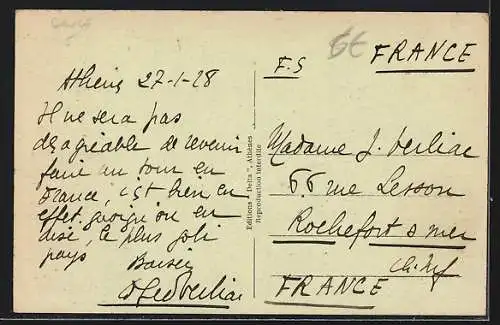 6€
FRANCE
F.S
Athènes 27-1-28
Il ne sera pas
désagréable de revenir
faire un tour en
France, c'est bien en
effet, quoiqu'on en
dise, le plus joli
pays
Baiser
Verliac
Editions "Delta", Athènes
Reproduction interdite
Madame J. Verliac
66 rue Lesson
Rochefort s mer
Ch. Inf
FRANCE